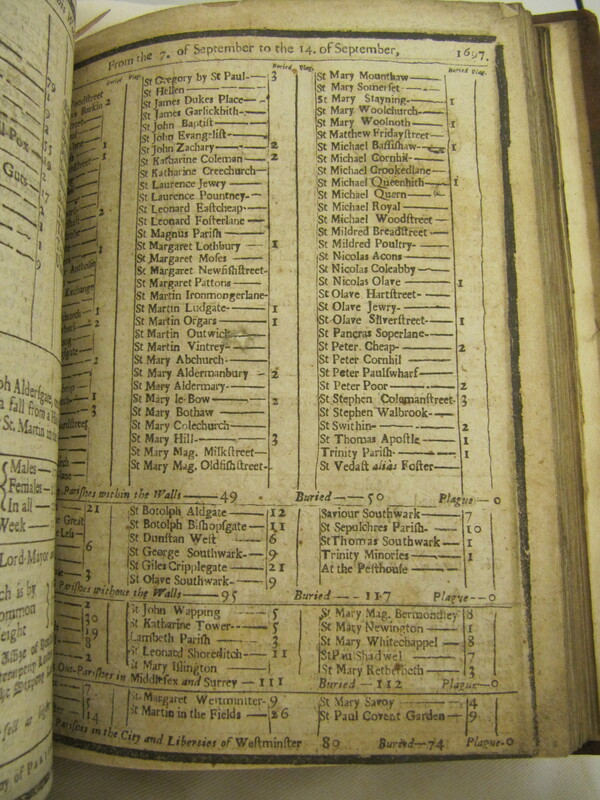 From the 7. of September to the 14. of September, 1697.
Buried Plag.
St Gregory by St Paul— 3
St Hellen
St James Dukes Place
St James Garlickhith
St John Baptist
St John Evangelist
St John Zachary 2
St Katharine Coleman 2
St Katharine Creechurch
St Laurence Jewry
St Laurence Pountney
St Leonard Eastcheap
St Leonard Fosterlane
St Magnus Parish
St Margaret Lothbury 1
St Margaret Moses
St Margaret Newfishstreet
St Margaret Pattons
St Martin Ironmongerlane
St Martin Ludgate 1
St Martin Orgars 1
St Martin Outwich
St Martin Vintrey
St Mary Abchurch
St Mary Aldermanbury 2
St Mary Aldermary
St Mary le-Bow 2
St Mary Bothaw
St Mary Colechurch
St Mary Hill 3
St Mary Mag. Milkstreet
St Mary Mag. Oldfishstreet
Buried Plag.
St Mary Mounthaw
St Mary Somerset
St Mary Stayning 1
St Mary Woolchurch
St Mary Woolnoth 1
St Matthew Fridaystreet
St Michael Bassishaw 1
St Michael Cornhil
St Michael Crookedlane
St Michael Queenhith 1
St Michael Quern
St Michael Royal
St Michael Woodstreet
St Mildred Breadstreet
St Mildred Poultry
St Nicolas Acons
St Nicolas Coleabby
St Nicolas Olave 1
St Olave Hartstreet
St Olave Jewry
St Olave Silverstreet 1
St Pancras Soperlane
St Peter Cheap 2
St Peter Cornhil
St Peter Paulswharf
St Peter Poor 2
St Stephen Colemanstreet 3
St Stephen Walbrook
St Swithin 2
St Thomas Apostle 1
Trinity Parish 1
St Vedast alias Foster
Parishes within the Walls — 49 Buried — 50 Plague — 0
St Botolph Aldgate 12
St Botolph Bishopsgate 11
St Dunstan West 6
St George Southwark 9
St Giles Cripplegate 21
St Olave Southwark 9
Saviour Southwark 7
St Sepulchres Parish 10
St Thomas Southwark 1
Trinity Minories 1
At the Pesthouse
Parishes without the Walls — 95 Buried — 117 Plague — 0
St John Wapping 5
St Katharine Tower 5
Lambeth Parish 3
St Leonard Shoreditch 11
St Mary Islington
St Mary Mag. Bermondsey 8
St Mary Newington 1
St Mary Whitechappel 8
St Paul Shadwel 7
St Mary Retherheth 3
Out-Parishes in Middlesex and Surrey — 111 Buried — 112 Plague — 0
St Margaret Westminster 9
St Martin in the Fields 26
St Mary Savoy 4
St Paul Covent Garden 9
Parishes in the City and Liberties of Westminster 80 Buried — 74 Plague — 0